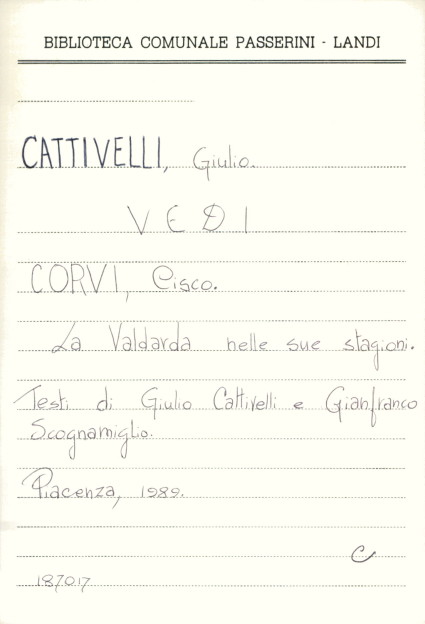 BIBLIOTECA COMUNALE PASSERINI - LANDI
CATTIVELLI, Giulio.
VEDI
CORVI, Cisco.
La Valdarda nelle sue stagioni.
Testi di Giulio Cattivelli e Gianfranco
Scognamiglio.
Piacenza, 1989.
C
187017